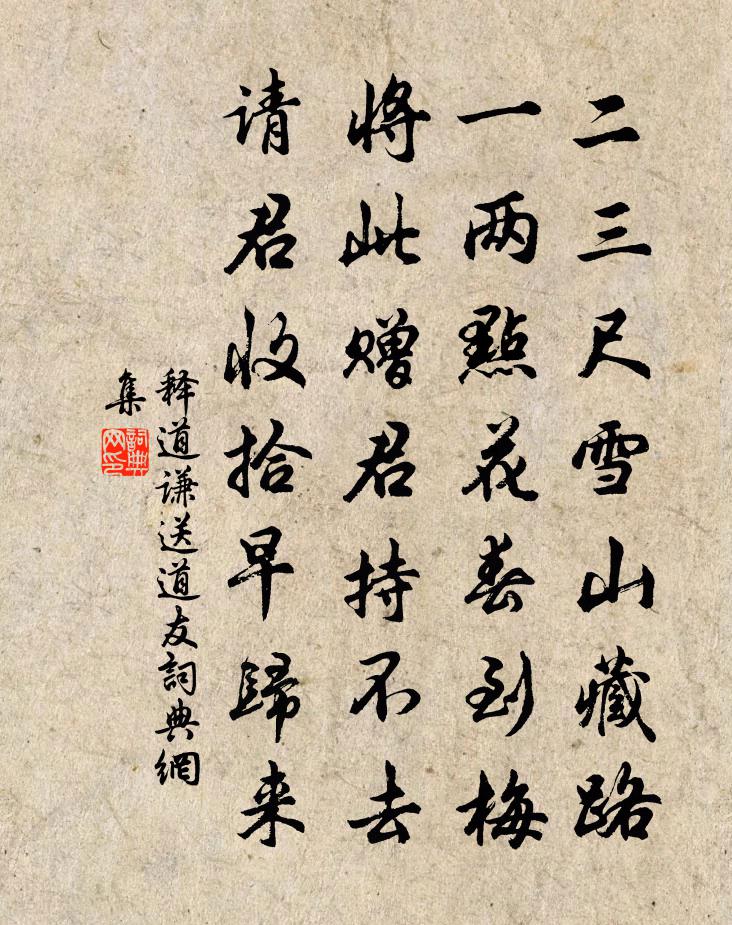 二三尺雪山藏路
一两點花春到梅
將此赠君持不去
请君收拾早歸来
释道谦送道友詞典網
集
詞典
网印